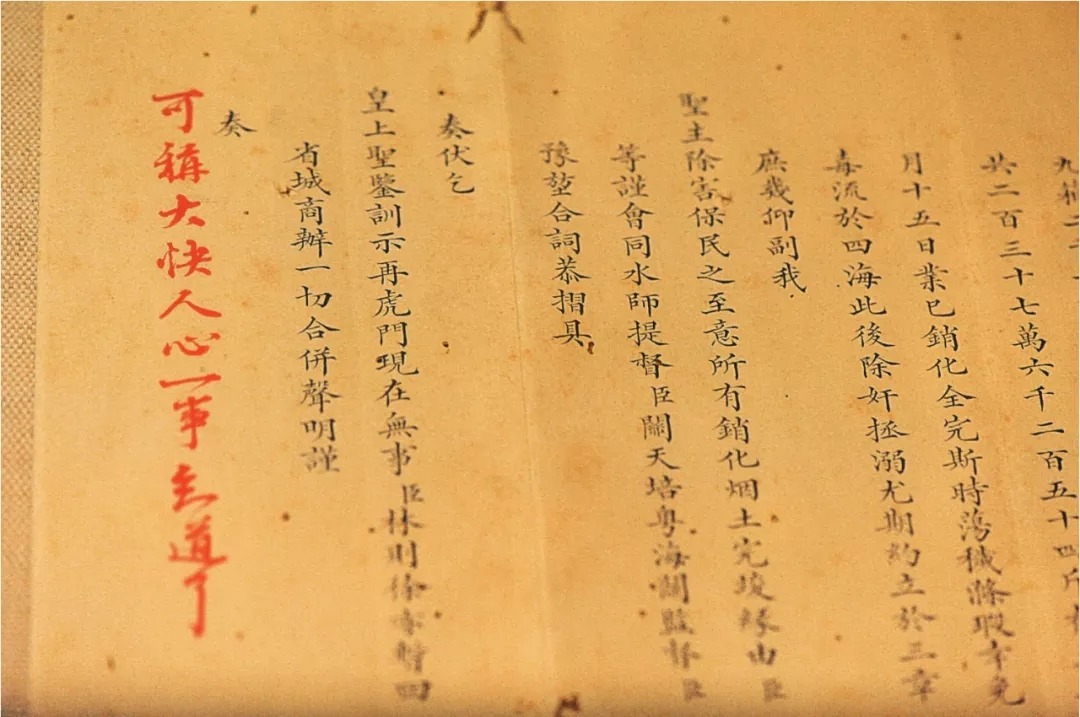 九箱二
共二百三十七萬六千二百五十四斤
月十五日業已銷化全完斯時蕩穢滌瑕幸免
毒流於四海此後除奸拯溺尤期約立於三章
庶幾仰副我
聖主除害保民之至意所有銷化烟土完竣緣由臣
等謹會同水師提督臣關天培粵海關監督臣
豫堃合詞恭摺具
奏伏乞
皇上聖鑒訓示再虎門現在無事臣林則徐亦暫回
省城商辦一切合併聲明謹
奏
可稱大快人心一事知道了